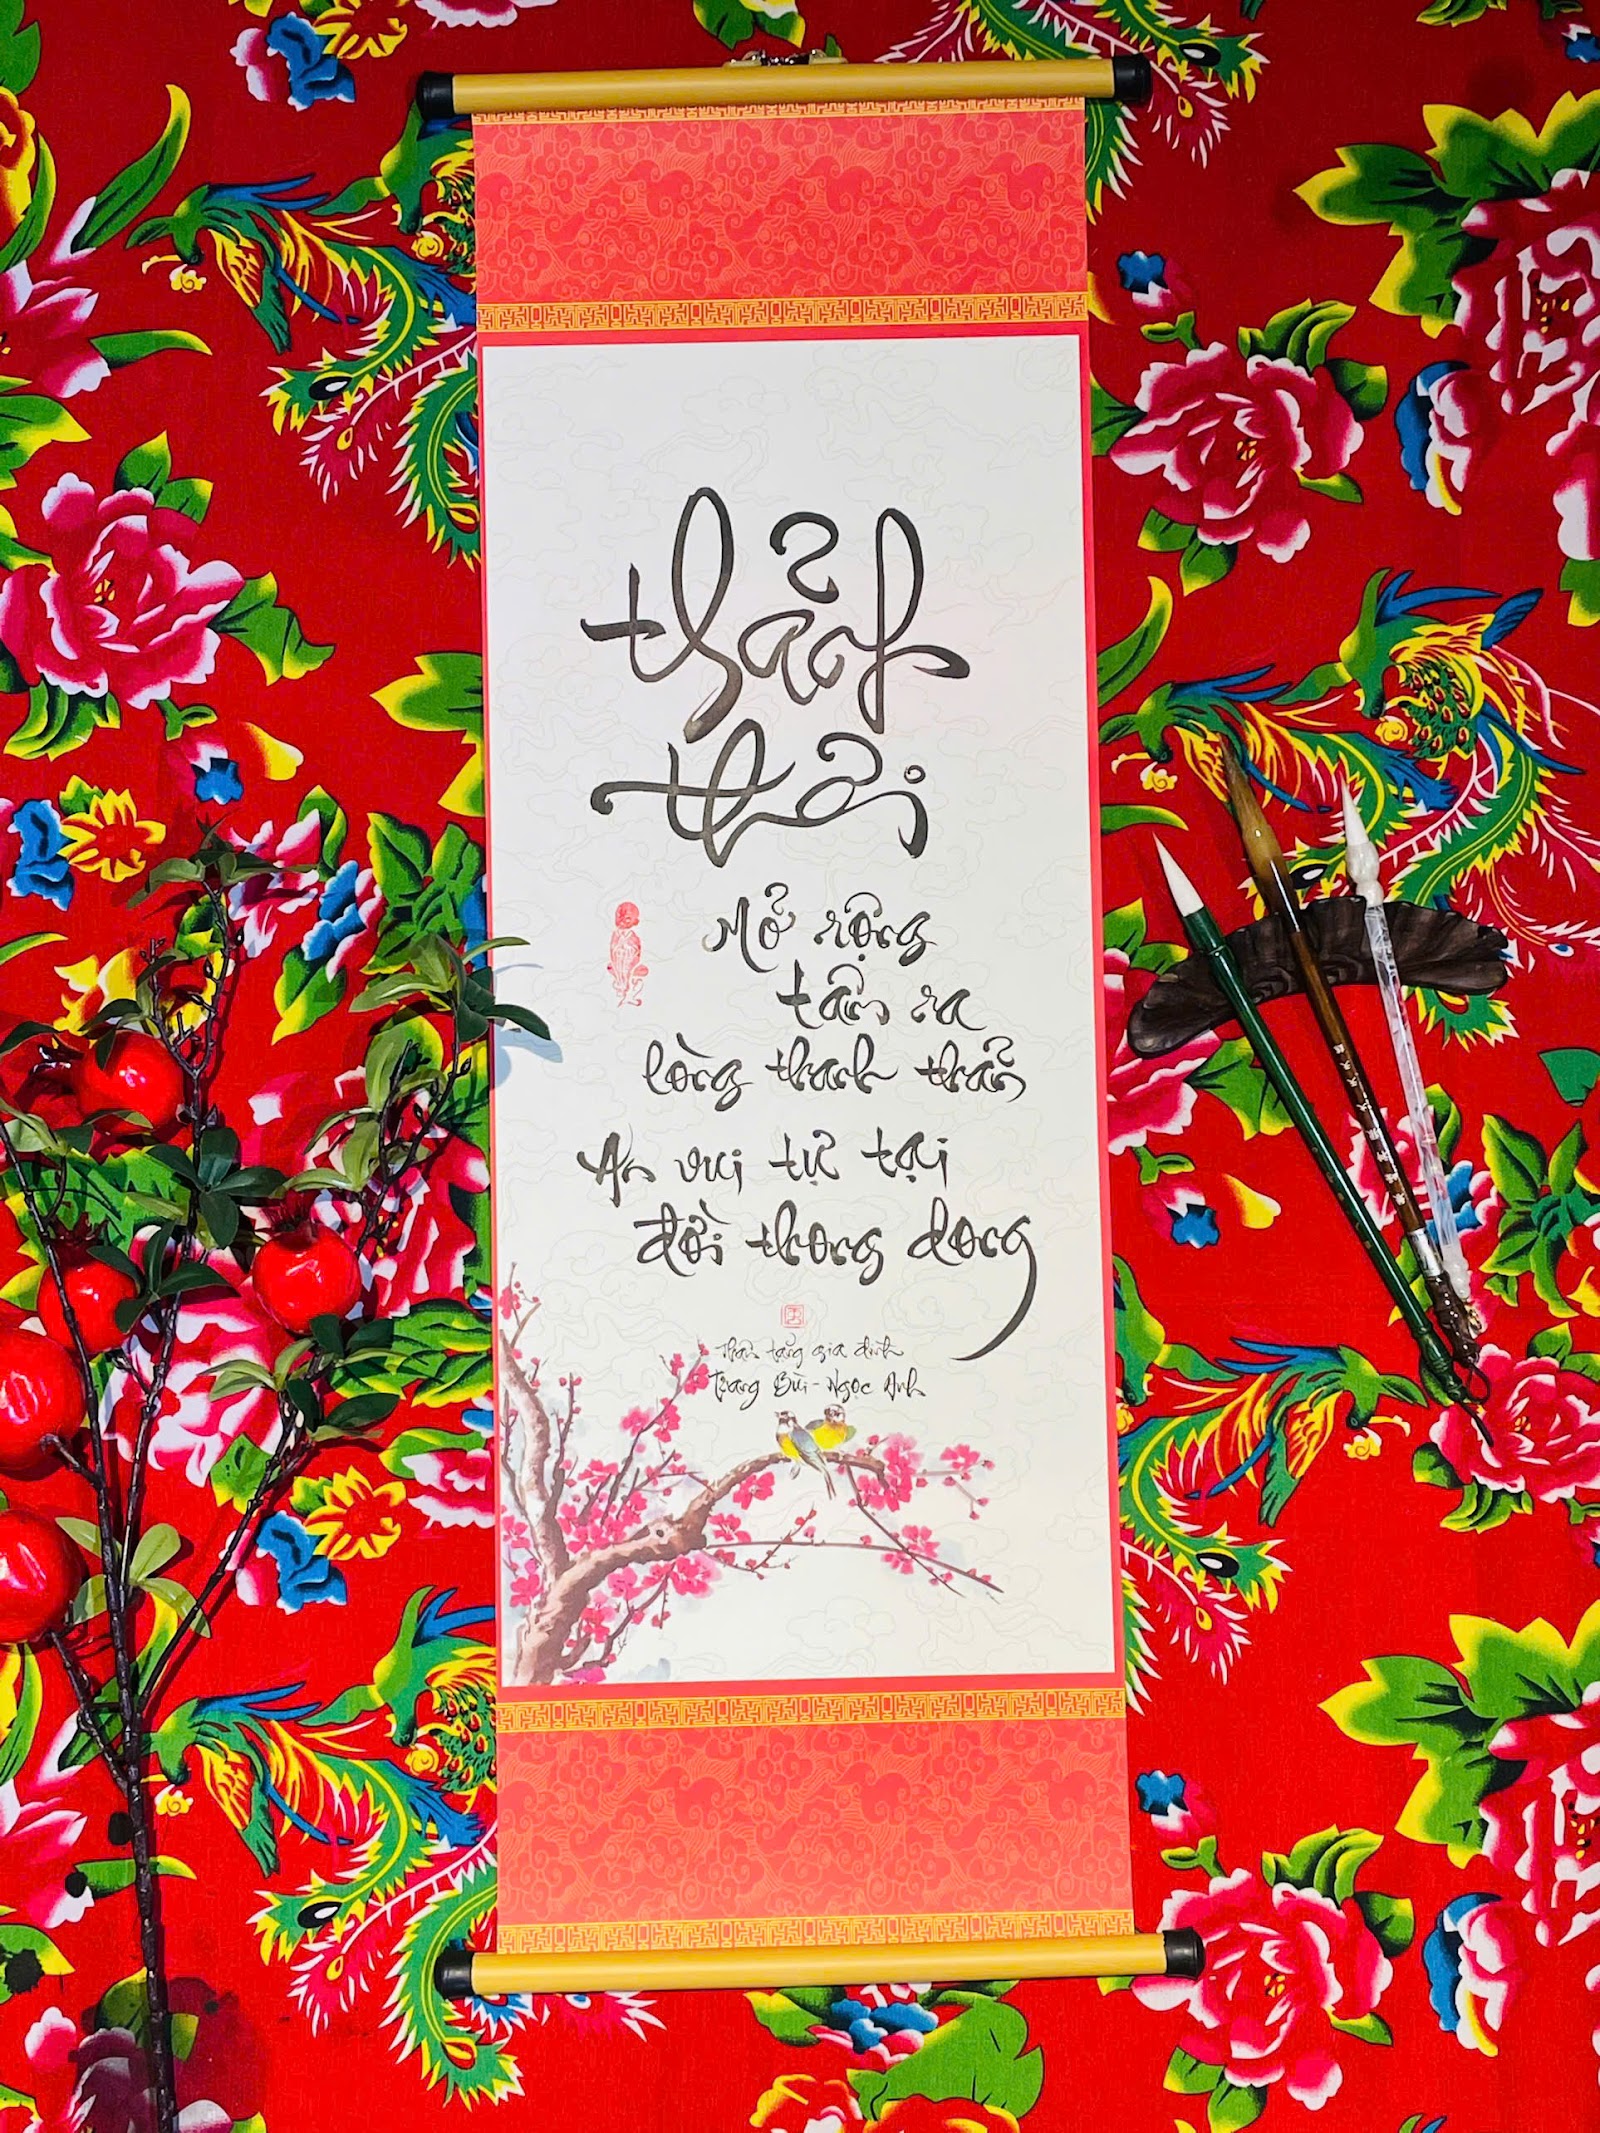 thảnh
thơi
Mở rộng
tâm ra
lòng thanh thản
An vui tự tại
đời thong dong
Thân tặng gia đình
Trang Bùi - Ngọc Anh